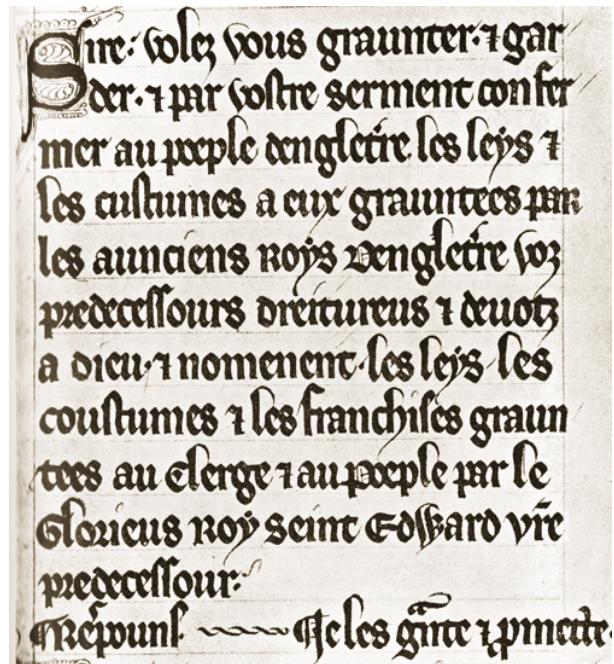 Sire: volez vous graunter· ⁊ gar
der· ⁊ par vostre serment confer
mer au poeple dengletre les leys ⁊
les custumes a eux grauntees par
les aunciens Roys Dengletre voz
predecessours dreitureus ⁊ devotz
a dieu· ⁊ nomement· les leys les
coustumes ⁊ les franchises graun
tees au Clerge ⁊ au poeple par le
Glorieus Roy Seint Edward vre
predecessour:
Respouns. Je les grante ⁊ pmette.